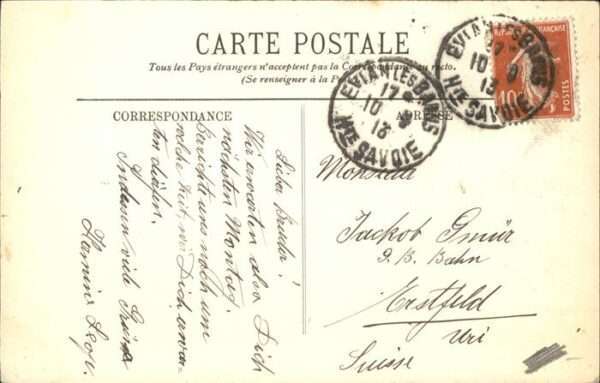 CARTE POSTALE
Tous les Pays étrangers n'acceptent pas la Correspondance au recto.
(Se renseigner à la
CORRESPONDANCE
ADRESSE
EVIAN LES BAINS
17
10
13
Hte SAVOIE
EVIAN LES BAINS
10
13
Hte SAVOIE
FRANÇAISE
10c
POSTES
Lieber Bruder!
Wir erwarten also Dich
nächsten Montag.
Berichte uns noch um
welche Zeit, wir Dich erwar-
ten dürfen.
Indessen viele Grüsse
Monsieur
Jackob Gmür
G. B. Bahn
Erstfeld
Uri
Suisse